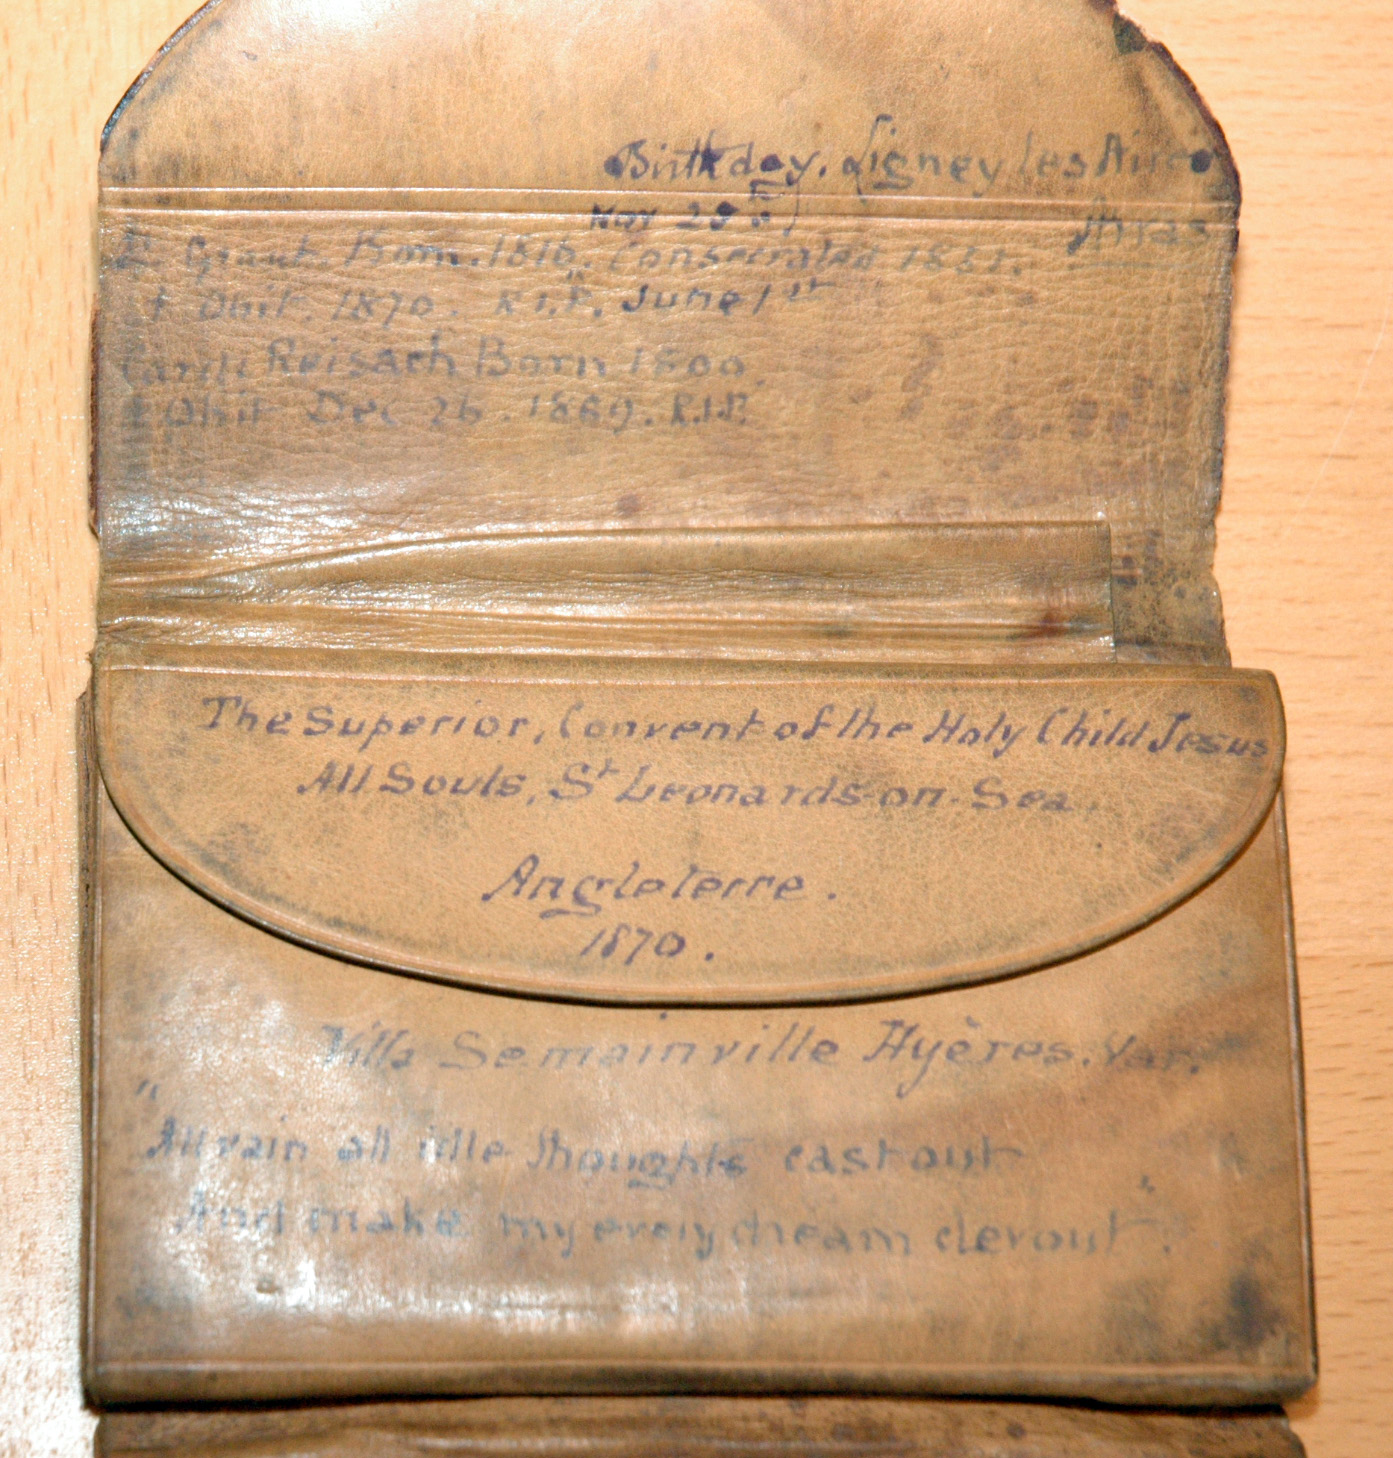 Birthday. Ligney les Aire
May 28th Arras
Dr. Grant. Born. 1816. Consecrated 1851.
† Obit. 1870. R.I.P. June 1st
Card: Reisach Born 1800.
† Obit Dec 26. 1869. R.I.P.
The Superior, Convent of the Holy Child Jesus
All Souls, St Leonards-on-Sea.
Angleterre.
1870.
Villa Semainville Hyères. Var.
"All vain all idle thoughts cast out
And make my every dream devout".